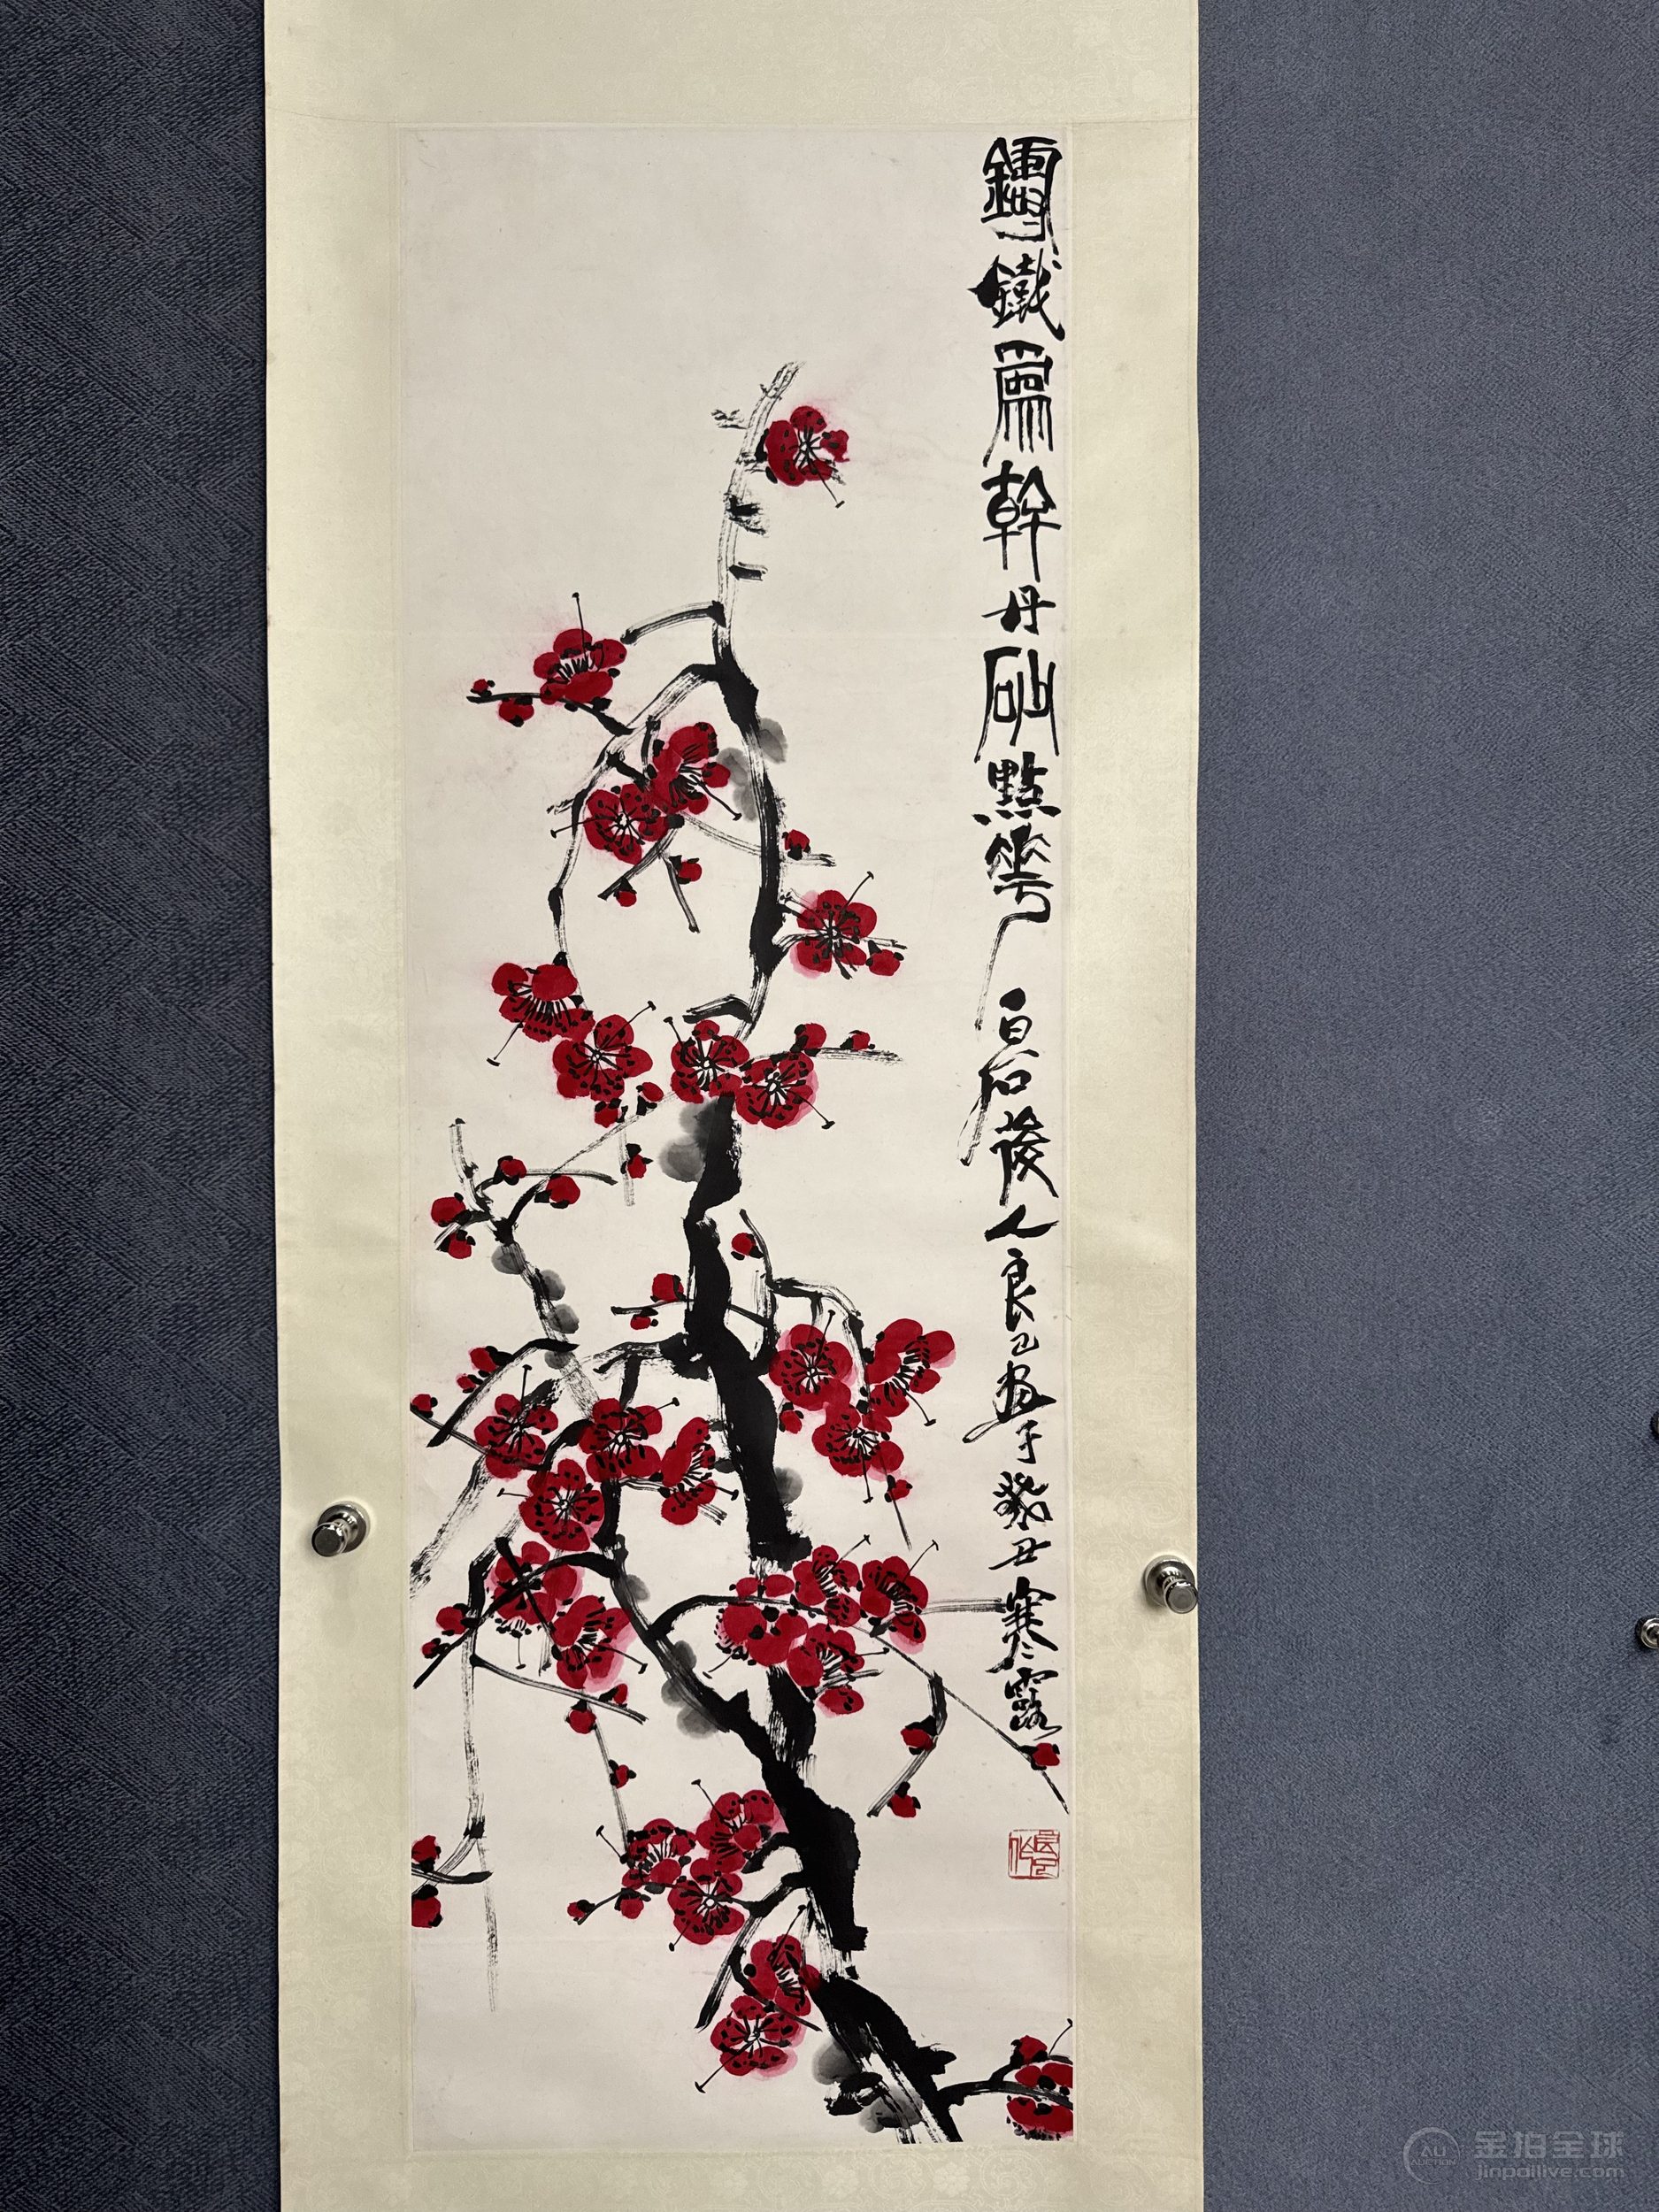 鑄鐵為幹丹砂點花 白石後人良已畫于癸丑寒露
良已
AU
AUCTION
金拍全球
jinpailive.com